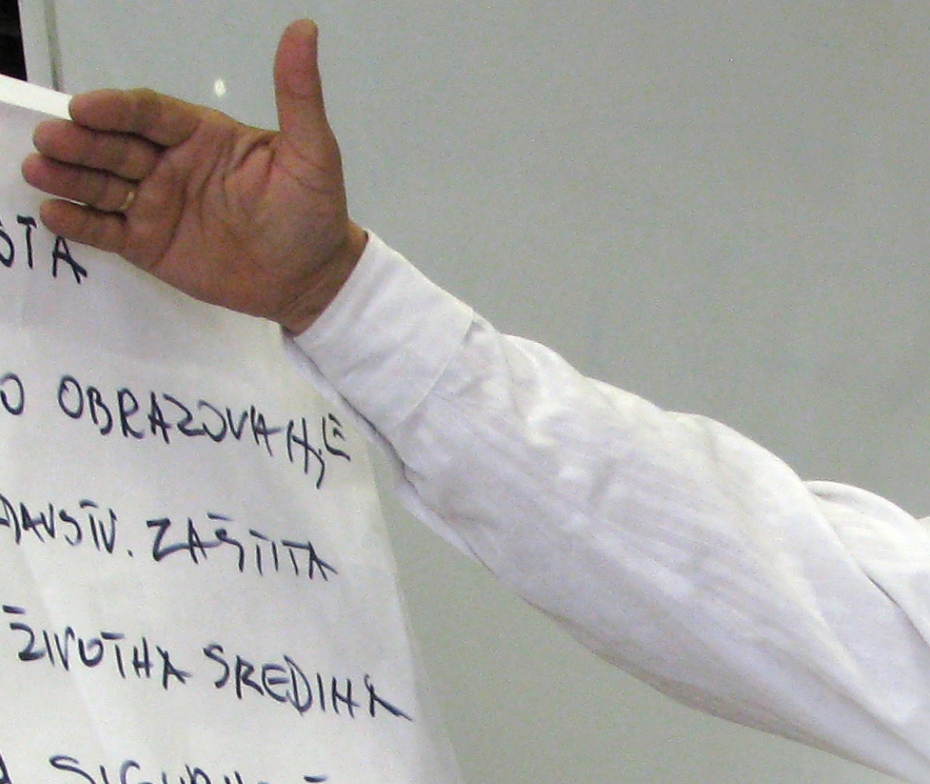 STA
O OBRAZOVANJE
AVSTV. ZAŠTITA
ŽIVOTNA SREDINA